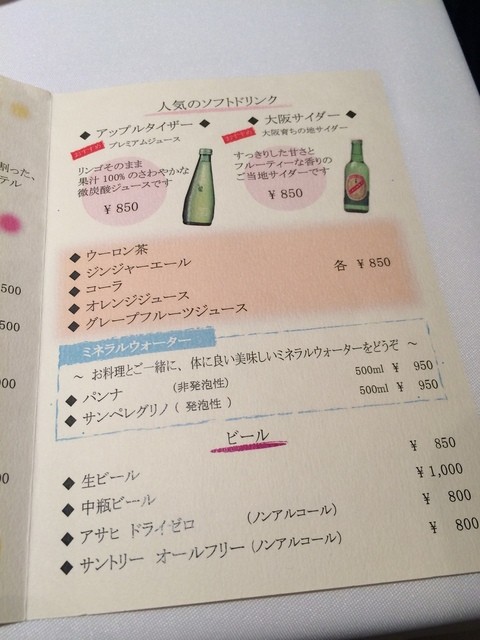 割った、
テル
500
500
00
0
人気のソフトドリンク
◆ アップルタイザー ◆
おすすめ プレミアムジュース
リンゴそのまま
果汁100%のさわやかな
微炭酸ジュースです
¥ 850
◆ 大阪サイダー ◆
おすすめ 大阪育ちの地サイダー
すっきりした甘さと
フルーティーな香りの
ご当地サイダーです
¥ 850
◆ ウーロン茶
◆ ジンジャーエール
◆ コーラ
◆ オレンジジュース
◆ グレープフルーツジュース
各 ¥ 850
ミネラルウォーター
～ お料理とご一緒に、体に良い美味しいミネラルウォーターをどうぞ ～
◆ パンナ (非発泡性) 500ml ¥ 950
◆ サンペレグリノ ( 発泡性 ) 500ml ¥ 950
ビール
◆ 生ビール ¥ 850
◆ 中瓶ビール ¥ 1,000
◆ アサヒ ドライゼロ (ノンアルコール) ¥ 800
◆ サントリー オールフリー (ノンアルコール) ¥ 800